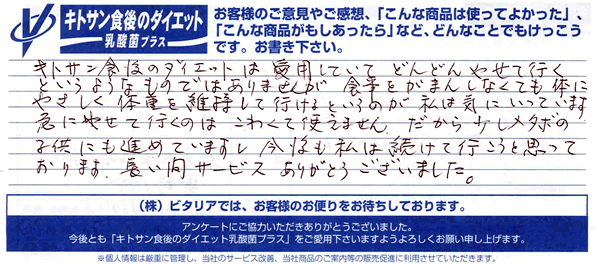 キトサン食後のダイエット
乳酸菌プラス
お客様のご意見やご感想、「こんな商品は使ってよかった」、
「こんな商品がもしあったら」など、どんなことでもけっこう
です。お書き下さい。
キトサン食後のダイエットは愛用していて どんどんやせて行く
というようなものではありませんが 食事をがまんしなくても体に
やさしく体重を維持して行けるというのが私は気にいっています
急にやせて行くのは こわくて使えません だから少しメタボの
子供にも進めていますし 今後も私は続けて行こうと思って
おります。長い間サービス ありがとうございました。
(株)ピタリアでは、お客様のお便りをお待ちしております。
アンケートにご協力いただきありがとうございました。
今後とも「キトサン食後のダイエット乳酸菌プラス」をご愛用下さいますようよろしくお願い申し上げます。
※個人情報は厳重に管理し、当社のサービス改善、当社商品のご案内等の販売促進に利用させていただきます。